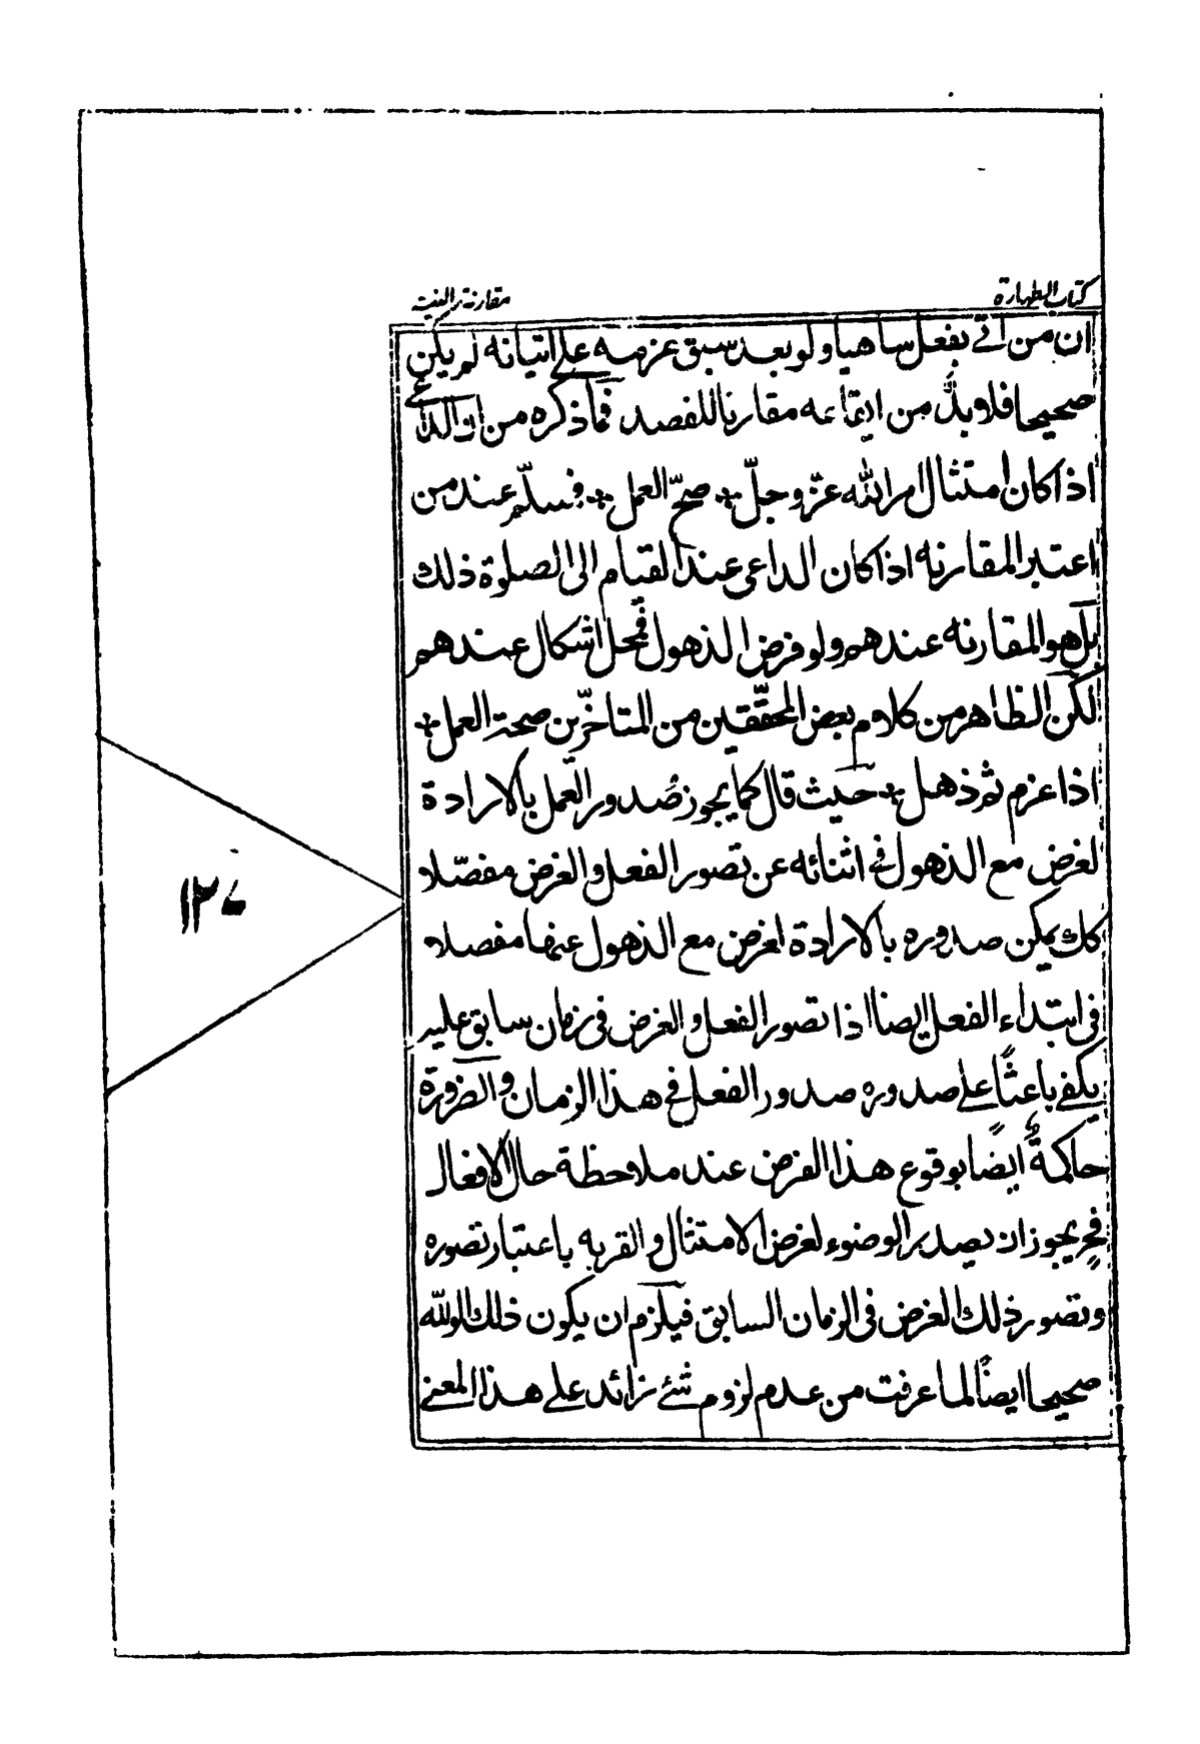 كتاب الطهارة
مقارنة النية
ان من اتى بفعل ساهيا ولو بعد سبق عزمه على اتيانه لم يكن
صحيحا فلا بدّ من ايقاعه مقارنا للقصد فما ذكره من ان الداعي
اذا كان امتثال امر الله عزّ وجلّ * صحّ العمل * فمسلّم عند من
اعتبر المقارنه اذا كان الداعى عند القيام الى الصلوة ذلك
بل هو المقارنه عندهم ولو فرض الذهول فمحل اشكال عندهم
لكن الظاهر من كلام بعض المحقّقين من المتاخّرين صحة العمل *
اذا عزم ثم ذهل * حيث قال كما يجوز صدور العمل بالارادة
لغرض مع الذهول فى اثنائه عن تصور الفعل والغرض مفصّلا
كك يمكن صدوره بالارادة لغرض مع الذهول عنها مفصلا
فى ابتداء الفعل ايضا اذا تصور الفعل والغرض فى زمان سابق عليه
يكفى باعثًا على صدوره صدور الفعل فى هذا الزمان والضرورة
حاكمةٌ ايضًا بوقوع هذا الفرض عند ملاحظة حال الافعال
فح يجوز ان يصدر الوضوء لغرض الامتثال والقربه باعتبار تصوره
وتصور ذلك الغرض فى الزمان السابق فيلزم ان يكون ذلك الوضوء
صحيحا ايضًا لما عرفت من عدم لزوم شئ زائد على هذا المعنى